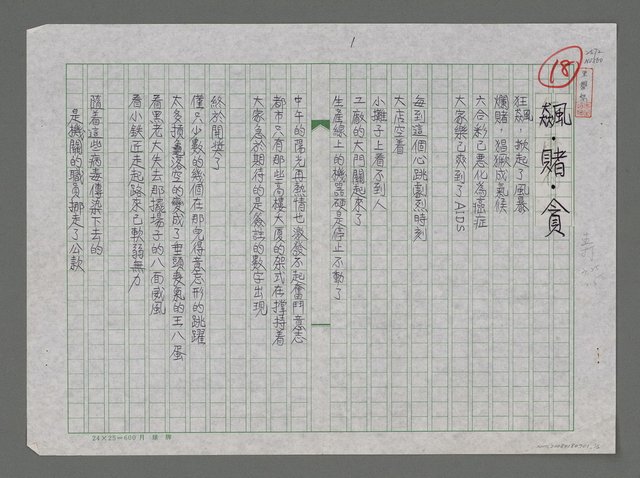 1
18
飆・賭・貪
狂飆，掀起了風暴
爛賭，猖厥成氣候
六合彩已惡化為癌症
大家樂已爽到了AIDS
每到這個心跳劇烈時刻
大店空着
小攤子上看不到人
工廠的大門關起來了
生產線上的機器硬是停止不動了
中午的陽光再熱情也激發不起奮鬥意志
都市只有那些高樓大廈的架式在撐持着
大家急於期待的是簽註的數字出現
終於開獎了
僅只少數的幾個在那兒得意忘形的跳躍
太多損龜落空的變成了垂頭喪氣的王八蛋
看黑老大失去那擺場子的八面威風
看小鉄匠走起路來已軟弱無力
隨着這些病毒傳染下去的
是機關的職員挪走了公款
24×25=600